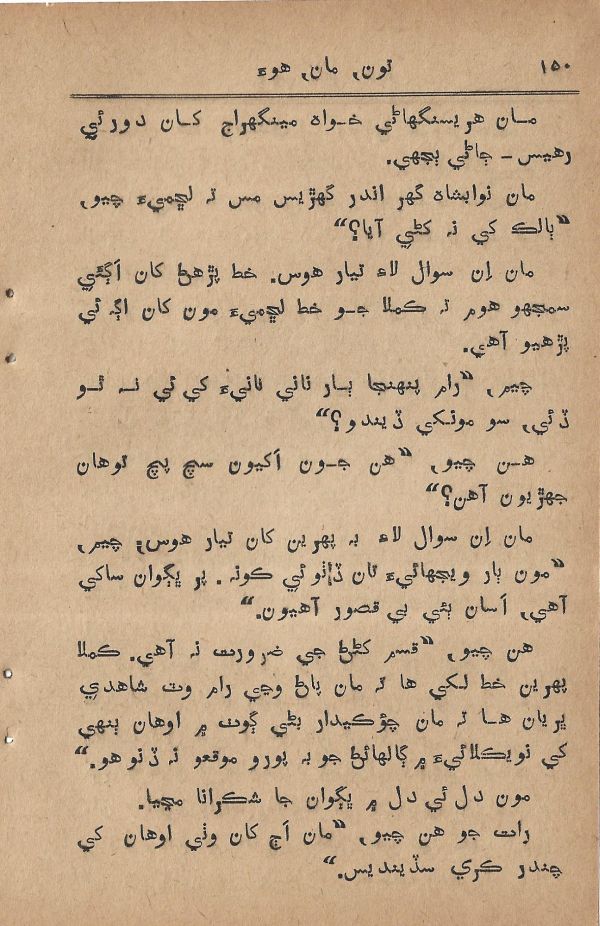 ۱۵۰
تون, مان, هوءَ
مان هريسنگهاڻي خواه مينگهراج کان دور ئي
رهيس – ڄاڻي ٻجهي.
مان نوابشاهه گهر اندر گهڙيس مس تہ لڇميءَ چيو,
“ٻالڪ کي نہ کڻي آيا؟”
مان اِن سوال لاءِ تيار هوس. خط پڙهڻ کان اَڳئي
سمجهو هوم تہ ڪملا جو خط لڇميءَ مون کان اڳ ئي
پڙهيو آهي.
چيم, “رام پنهنجا ٻار ناني نانيءَ کي ئي نہ ٿو
ڏئي, سو مونکي ڏيندو؟”
هن چيو, “هن جون اَکيون سچ پچ توهان
جهڙيون آهن؟”
مان اِن سوال لاءِ بہ پهرين کان تيار هوس; چيم,
“مون ٻار ويجهائيءَ تان ڏٺو ئي ڪونہ. پر ڀڳوان ساکي
آهي, اَسان ٻئي بي قصور آهيون.”
هن چيو, “قسم کڻڻ جي ضرورت نہ آهي. ڪملا
پهرين خط لکي ها تہ مان پاڻ وڃي رام وٽ شاهدي
ڀريان ها تہ مان چؤڪيدار بڻي ڳوٺ ۾ اوهان ٻنهي
کي نويڪلائيءَ ۾ ڳالهائڻ جو بہ پورو موقعو نہ ڏنو هو.”
مون دل ئي دل ۾ ڀڳوان جا شڪرانا مڃيا.
رات جو هن چيو, “مان اَڄ کان وٺي اوهان کي
چندر ڪري سڏينديس.”